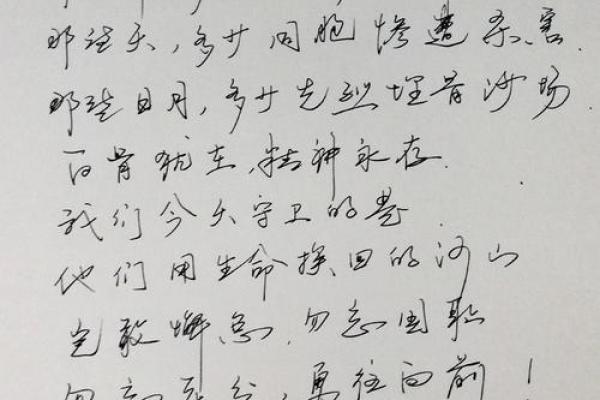 那些天，多少同胞惨遭杀害.
那些日月，多少先烈埋骨沙场
白骨犹在，精神永存.
我们今天守卫的是
他们用生命换回的河山
岂敢懈怠，勿忘国耻
勿忘，勇往向前！